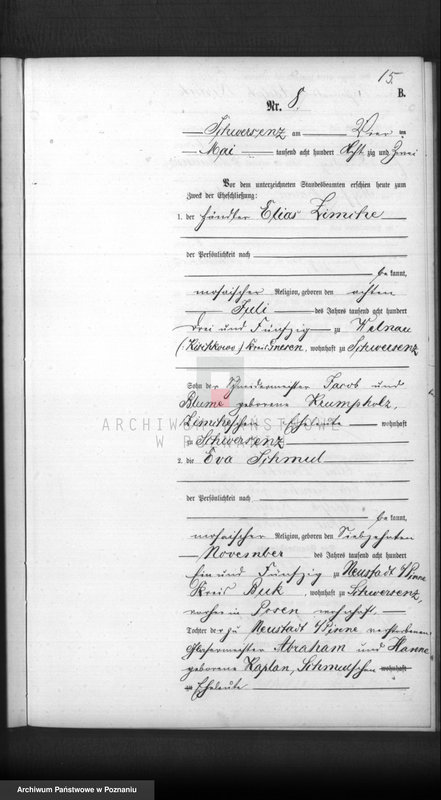 15.
B.
Nr. 8.
Schwersenz am Vier ten
Mai tausend acht hundert Acht zig und Zwei
Vor dem unterzeichneten Standesbeamten erschien heute zum
Zweck der Eheschließung:
1. der Händler Elias Zimche
der Persönlichkeit nach
be kannt,
mosaischer Religion, geboren den achten
Juli des Jahres tausend acht hundert
drei und Fünfzig zu Welnau
(Kischkowo) Kreis Gnesen, wohnhaft zu Schwersenz
Sohn der Schneidermeister Jacob und
Blume geborene Krumpholz,
Eheleute wohnhaft
zu Schwersenz
2. die Eva Schmul
der Persönlichkeit nach
be kannt,
mosaischer Religion, geboren den Siebzehnten
November des Jahres tausend acht hundert
Ein und Fünfzig zu Neustadt b/Pinne
Kreis Buk, wohnhaft zu Schwersenz,
vorher in Posen wohnhaft
Tochter der zu Neustadt b/Pinne verstorbenen
Glasermeister Abraham und Hanne
geborene Kaplan, Schmulschen wohnhaft
zu Eheleute
ARCHIWUM PAŃSTWOWE
W POZNANIU
Archiwum Państwowe w Poznaniu